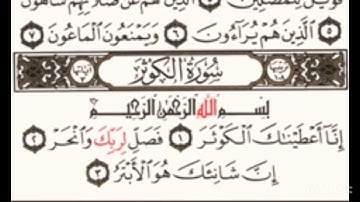 فَوَيْلٌ لِّلْمُصَلِّينَ ٤ الَّذِينَ هُمْ عَن صَلَاتِهِمْ سَاهُونَ
٥ الَّذِينَ هُمْ يُرَآءُونَ ٦ وَيَمْنَعُونَ الْمَاعُونَ ٧
سُورَةُ الْكَوْثَرِ
بِسْمِ اللَّهِ الرَّحْمَٰنِ الرَّحِيمِ
إِنَّا أَعْطَيْنَاكَ الْكَوْثَرَ ١ فَصَلِّ لِرَبِّكَ وَانْحَرْ ٢
إِنَّ شَانِئَكَ هُوَ الْأَبْتَرُ ٣